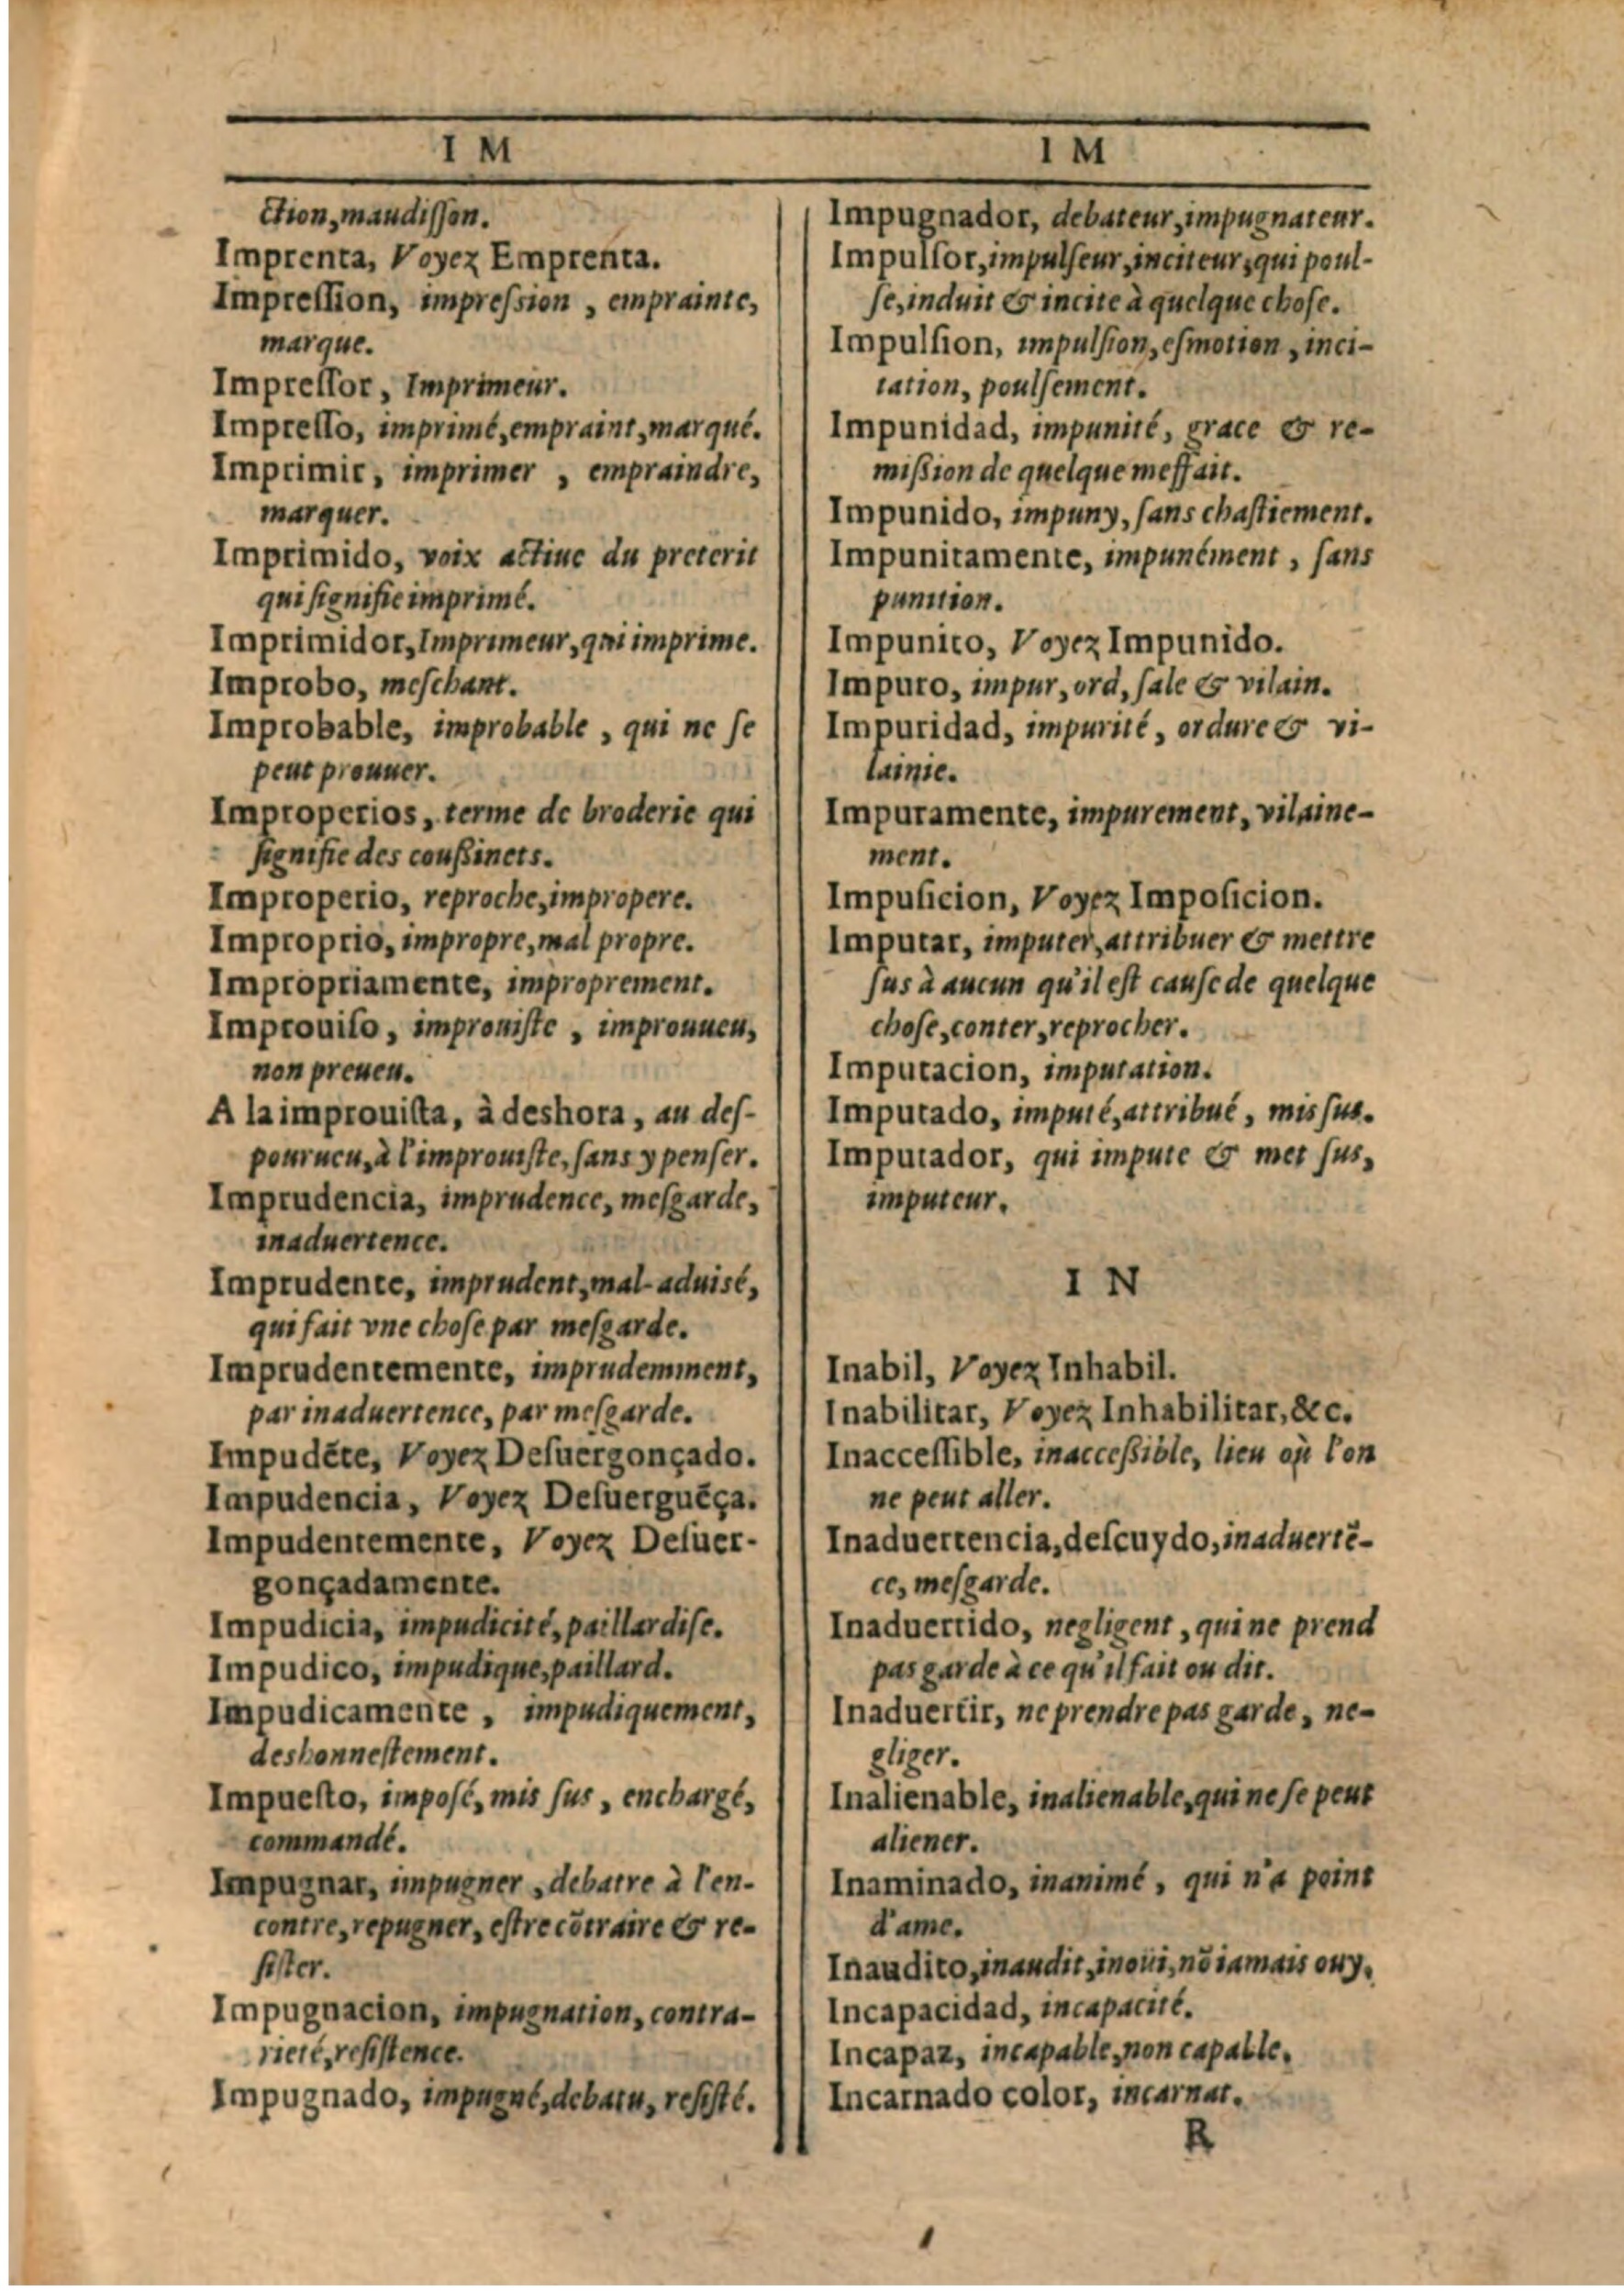 I M
ction, maudiſſon.
Imprenta, Voyez Emprenta.
Impreſſion, impreſsion, emprainte,
marque.
Impreſſor, Imprimeur.
Impreſſo, imprimé, empraint, marqué.
Imprimir, imprimer, empraindre,
marquer.
Imprimido, voix actiue du preterit
qui ſignifie imprimé.
Imprimidor, Imprimeur, qui imprime.
Improbo, meſchant.
Improbable, improbable, qui ne ſe
peut prouuer.
Improperios, terme de broderie qui
ſignifie des couſſinets.
Improperio, reproche, impropere.
Improprio, impropre, mal propre.
Impropriamente, improprement.
Improuiſo, improuiſte, improuueu,
non preueu.
A la improuiſta, à deshora, au deſ-
pourueu, à l'improuiſte, ſans y penſer.
Imprudencia, imprudence, meſgarde,
inaduertence.
Imprudente, imprudent, mal-aduisé,
qui fait vne choſe par meſgarde.
Imprudentemente, imprudemment,
par inaduertence, par meſgarde.
Impudẽte, Voyez Deſuergonçado.
Impudencia, Voyez Deſuerguẽça.
Impudentemente, Voyez Deſuer-
gonçadamente.
Impudicia, impudicité, paillardiſe.
Impudico, impudique, paillard.
Impudicamente, impudiquement,
deshonneſtement.
Impueſto, impoſé, mis ſus, enchargé,
commandé.
Impugnar, impugner, debatre à l'en-
contre, repugner, eſtre cõtraire & re-
ſiſter.
Impugnacion, impugnation, contra-
rieté, reſiſtence.
Impugnado, impugné, debatu, reſiſté.
I M
Impugnador, debateur, impugnateur.
Impulſor, impulſeur, inciteur, qui poul-
ſe, induit & incite à quelque choſe.
Impulſion, impulſion, eſmotion, inci-
tation, poulſement.
Impunidad, impunité, grace & re-
miſsion de quelque meffait.
Impunido, impuny, ſans chaſtiement.
Impunitamente, impunément, ſans
punition.
Impunito, Voyez Impunido.
Impuro, impur, ord, ſale & vilain.
Impuridad, impurité, ordure & vi-
lainie.
Impuramente, impurement, vilaine-
ment.
Impuſicion, Voyez Impoſicion.
Imputar, imputer, attribuer & mettre
ſus à aucun qu'il eſt cauſe de quelque
choſe, conter, reprocher.
Imputacion, imputation.
Imputado, imputé, attribué, mis ſus.
Imputador, qui impute & met ſus,
imputeur.
I N
Inabil, Voyez Inhabil.
Inabilitar, Voyez Inhabilitar, &c.
Inacceſſible, inacceſsible, lieu où l'on
ne peut aller.
Inaduertencia, deſcuydo, inaduertẽ-
ce, meſgarde.
Inaduertido, negligent, qui ne prend
pas garde à ce qu'il fait ou dit.
Inaduertir, ne prendre pas garde, ne-
gliger.
Inalienable, inalienable, qui ne ſe peut
aliener.
Inaminado, inanimé, qui n'a point
d'ame.
Inaudito, inaudit, inoüi, nõ iamais ouy.
Incapacidad, incapacité.
Incapaz, incapable, non capable.
Incarnado color, incarnat.
R